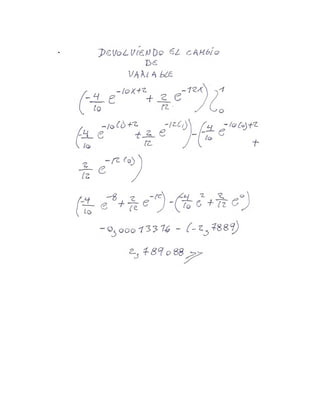 DEVOLVIENDO EL CAMBIO
DE
VARIABLE
(-4/10 e^-10x+2 + 2/12 e^-12x) ]^1_0
(-4/10 e^-10(1)+2 + 2/12 e^-12(1)) - (-4/10 e^-10(0)+2 +
2/12 e^-12(0))
(-4/10 e^-8 + 2/12 e^-12) - (-4/10 e^2 + 2/12 e^0)
-0,00013316 - (-2,7889)
2,789088